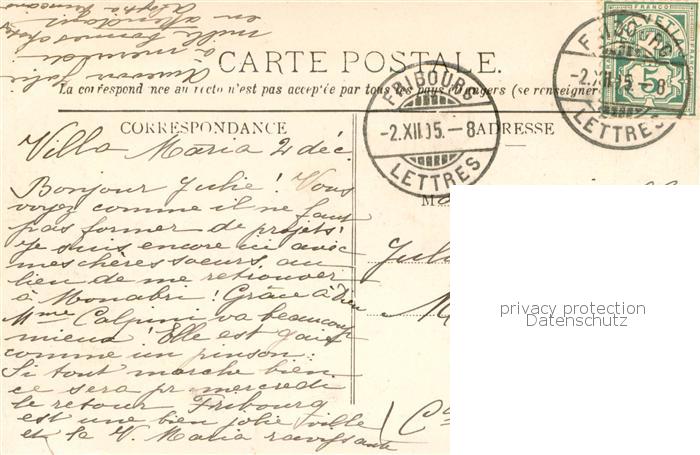 CARTE POSTALE.
La correspondance au recto n'est pas acceptée par tous les pays étrangers (se renseigner
CORRESPONDANCE
ADRESSE
HELVETIA
FRANCO
5
FRIBOURG
-2.XII.05.-8
LETTRES
FRIBOURG
-2.XII.05.-8
LETTRES
Villa Maria 2 déc.
Bonjour Julie! Vous
voyez comme il ne faut
pas former de projets!
Je suis encore ici avec
mes chères soeurs au
lieu de me retrouver
à Monabri! Grâce à Dieu
Mme Calpini va beaucoup
mieux! Elle est gaie
comme un pinson.
Si tout marche bien
ce sera pr mercredi
le retour. Fribourg
est une bien jolie ville
et la V. Maria ravissante
en attendant
mille bonnes choses
à
M
privacy protection
Datenschutz